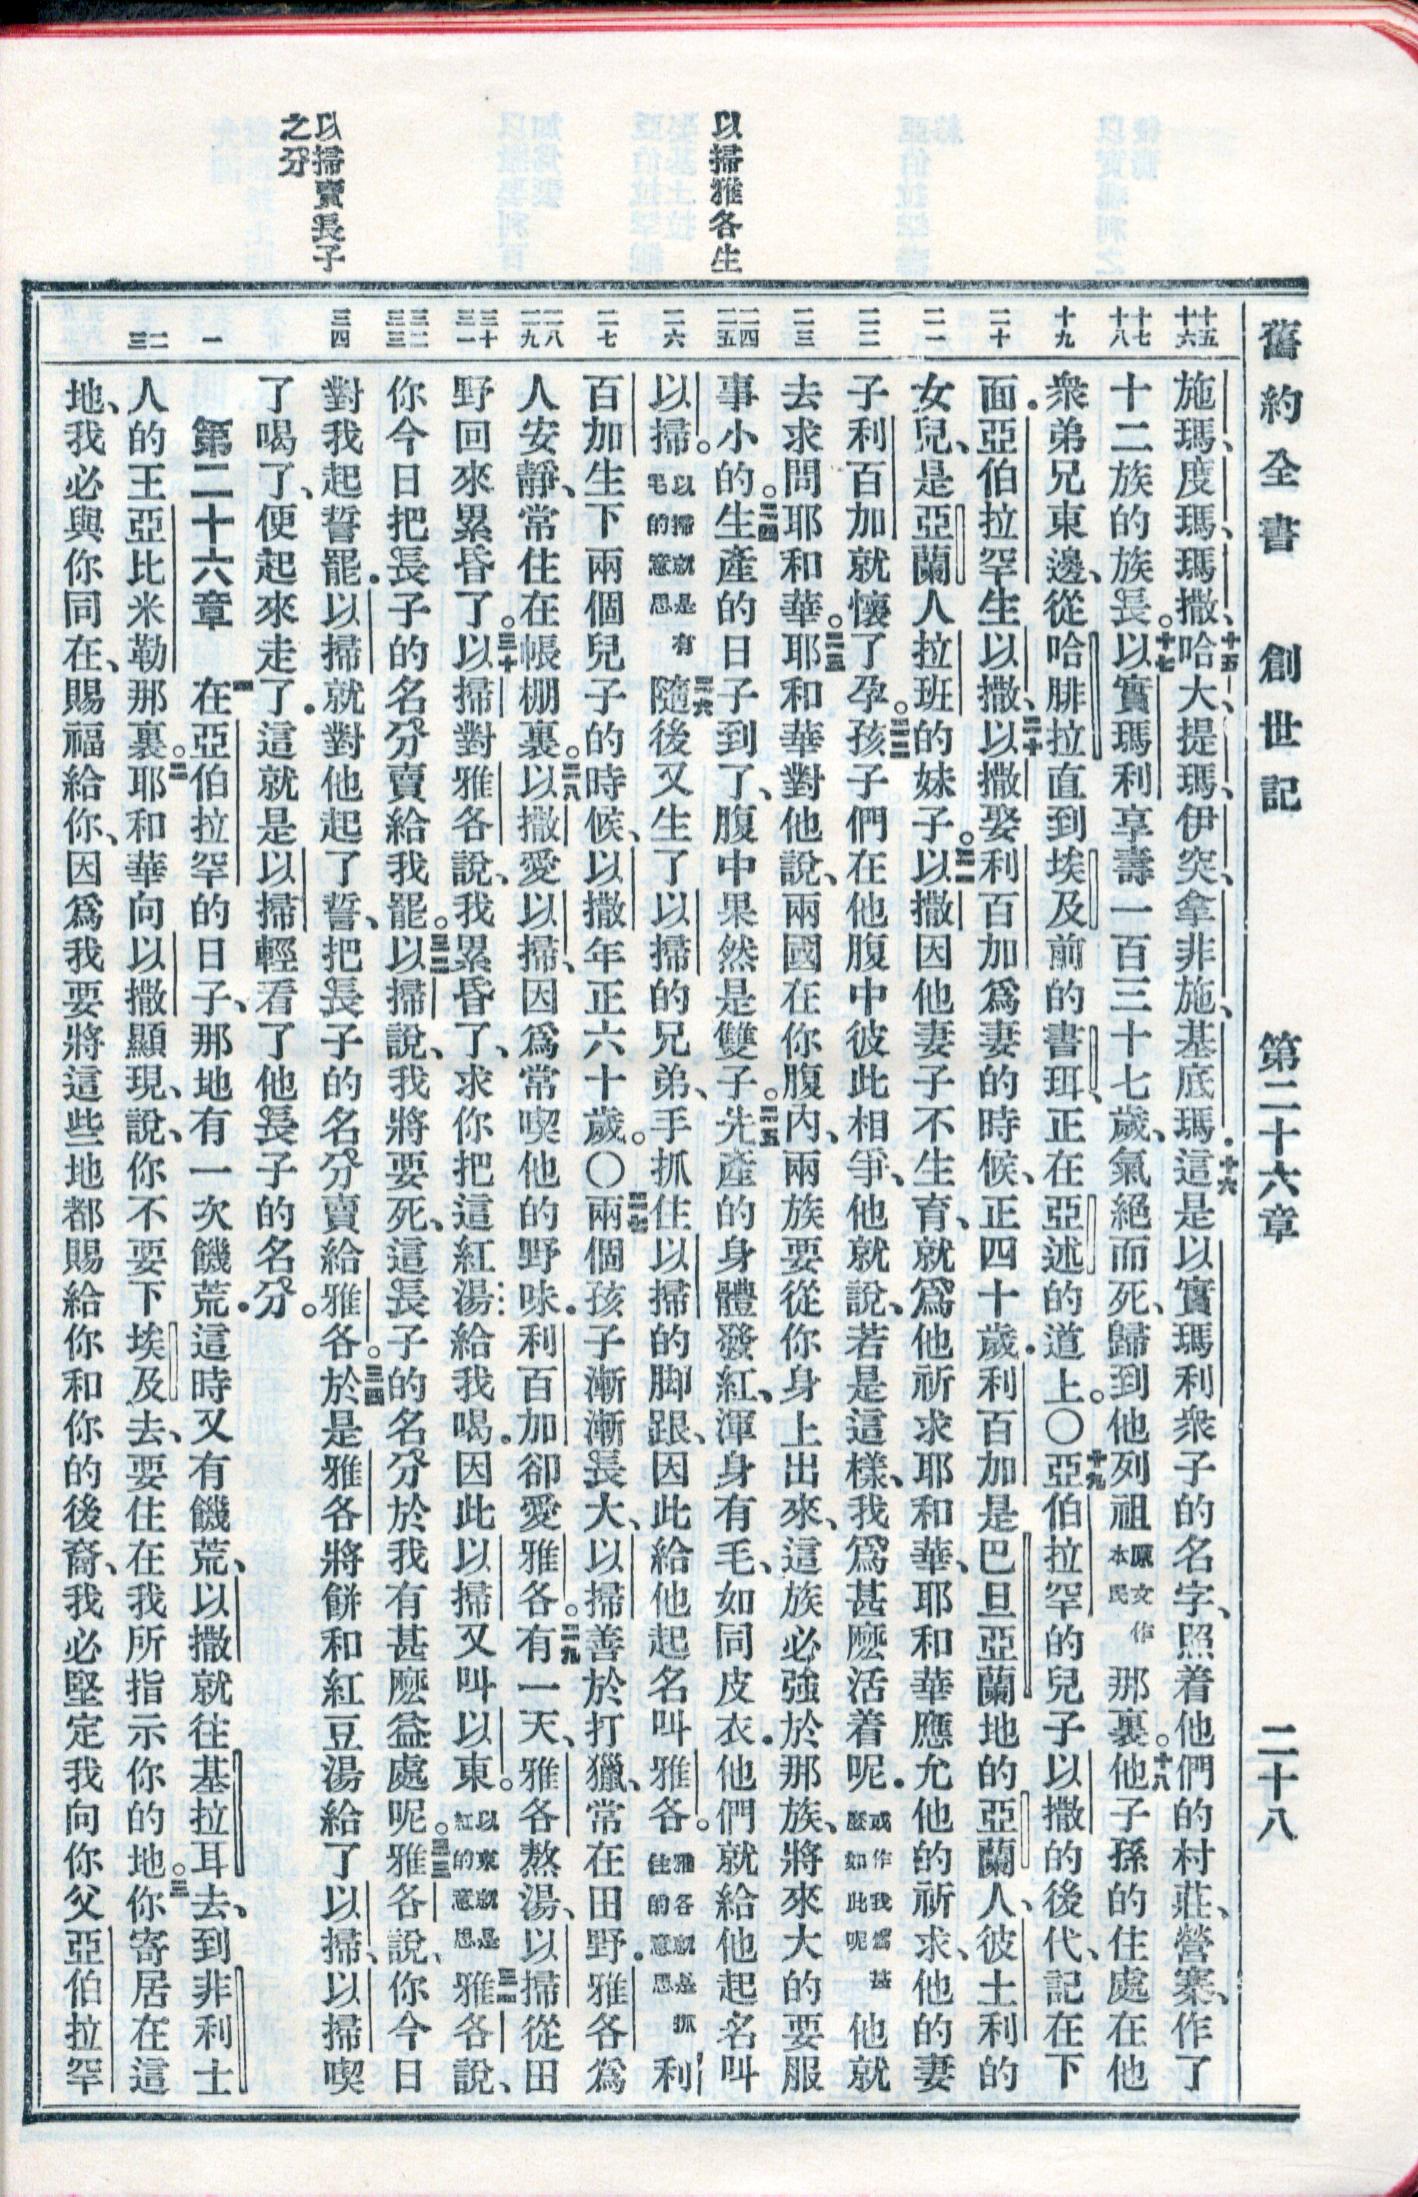 舊約全書　創世記　第二十六章　二十八
以掃雅各生
以掃賣長子
之分
十五
十六
十七
十八
十九
二十
二一
二二
二三
二四
二五
二六
二七
二八
二九
三十
三一
三二
三三
三四
一
二
三
施瑪、度瑪、瑪撒、十五哈大、提瑪、伊突、拿非施、基底瑪．十六這是以實瑪利衆子的名字、照着他們的村莊、營寨、作了
十二族的族長。十七以實瑪利享壽一百三十七歲、氣絕而死、歸到他列祖原文作本民那裏。十八他子孫的住處在他
衆弟兄東邊、從哈腓拉直到埃及前的書珥、正在亞述的道上。〇十九亞伯拉罕的兒子以撒的後代、記在下
面．亞伯拉罕生以撒、二十以撒娶利百加爲妻的時候、正四十歲．利百加是巴旦亞蘭地的亞蘭人、彼土利的
女兒、是亞蘭人拉班的妹子。二一以撒因他妻子不生育、就爲他祈求耶和華、耶和華應允他的祈求、他的妻
子利百加就懷了孕。二二孩子們在他腹中彼此相爭、他就說、若是這樣、我爲甚麽活着呢．或作我爲甚麽如此呢他就
去求問耶和華。二三耶和華對他說、兩國在你腹內、兩族要從你身上出來、這族必強於那族、將來大的要服
事小的。二四生產的日子到了、腹中果然是雙子。二五先產的身體發紅、渾身有毛、如同皮衣．他們就給他起名叫
以掃。以掃就是有毛的意思二六隨後又生了以掃的兄弟、手抓住以掃的脚跟、因此給他起名叫雅各。雅各就是抓住的意思利
百加生下兩個兒子的時候、以撒年正六十歲。〇二七兩個孩子漸漸長大、以掃善於打獵、常在田野．雅各爲
人安靜、常住在帳棚裏。二八以撒愛以掃、因爲常喫他的野味．利百加卻愛雅各。二九有一天、雅各熬湯、以掃從田
野回來累昏了。三十以掃對雅各說、我累昏了、求你把這紅湯給我喝．因此以掃又叫以東。以東就是紅的意思三一雅各說、
你今日把長子的名分賣給我罷。三二以掃說、我將要死、這長子的名分於我有甚麽益處呢。三三雅各說、你今日
對我起誓罷．以掃就對他起了誓、把長子的名分賣給雅各。三四於是雅各將餅和紅豆湯給了以掃、以掃喫
了喝了、便起來走了．這就是以掃輕看了他長子的名分。
第二十六章　一在亞伯拉罕的日子、那地有一次饑荒．這時又有饑荒、以撒就往基拉耳去、到非利士
人的王亞比米勒那裏。二耶和華向以撒顯現、說、你不要下埃及去、要住在我所指示你的地。三你寄居在這
地、我必與你同在、賜福給你、因爲我要將這些地都賜給你和你的後裔、我必堅定我向你父亞伯拉罕